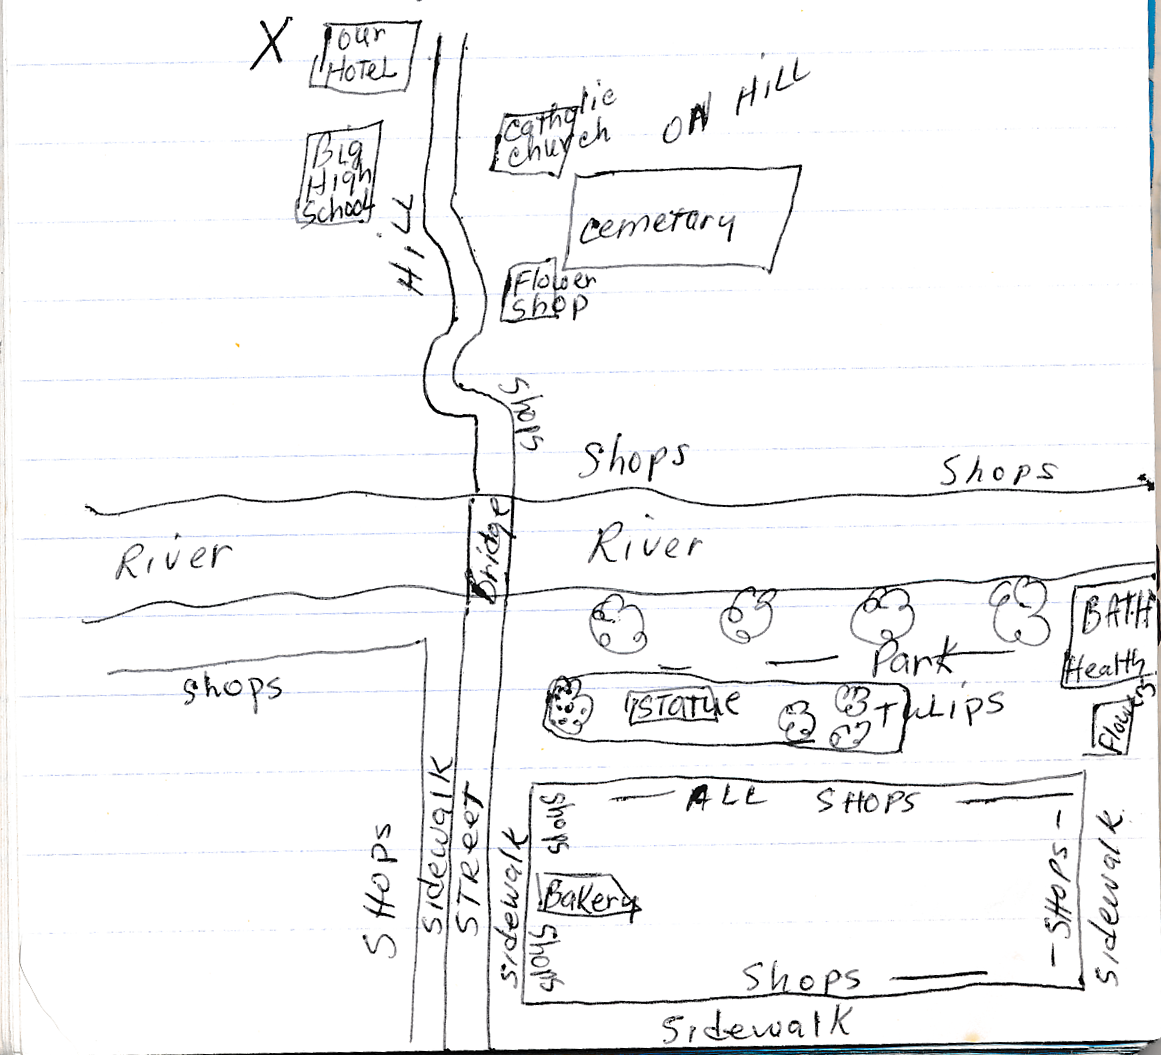 X
our
HoTeL
Catholic
church
ON HiLL
Big
High
School
HiLL
cemetary
Flower
Shop
Shops
Shops
Shops
River
Bridge
River
BATH
Health
Park
shops
STaTue
TuLips
ALL SHOPS
Shops
SHops
Sidewalk
STReeT
Sidewalk
Bakery
Shops
-SHOPS-
Sidewalk
Shops
Sidewalk